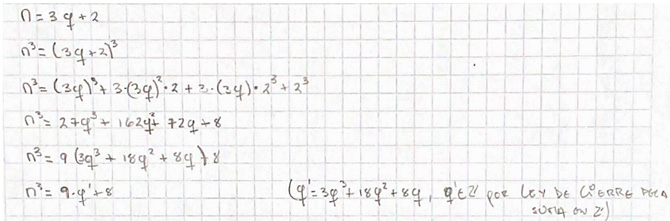 n = 3q + 2
n³ = (3q + 2)³
n³ = (3q)³ + 3·(3q)²·2 + 3·(3q)·2³ + 2³
n³ = 27q³ + 162q² + 72q + 8
n³ = 9(3q³ + 18q² + 8q) + 8
n³ = 9·q' + 8 (q' = 3q³ + 18q² + 8q, q' ∈ Z por LEY DE CIERRE PARA
SUMA EN Z)